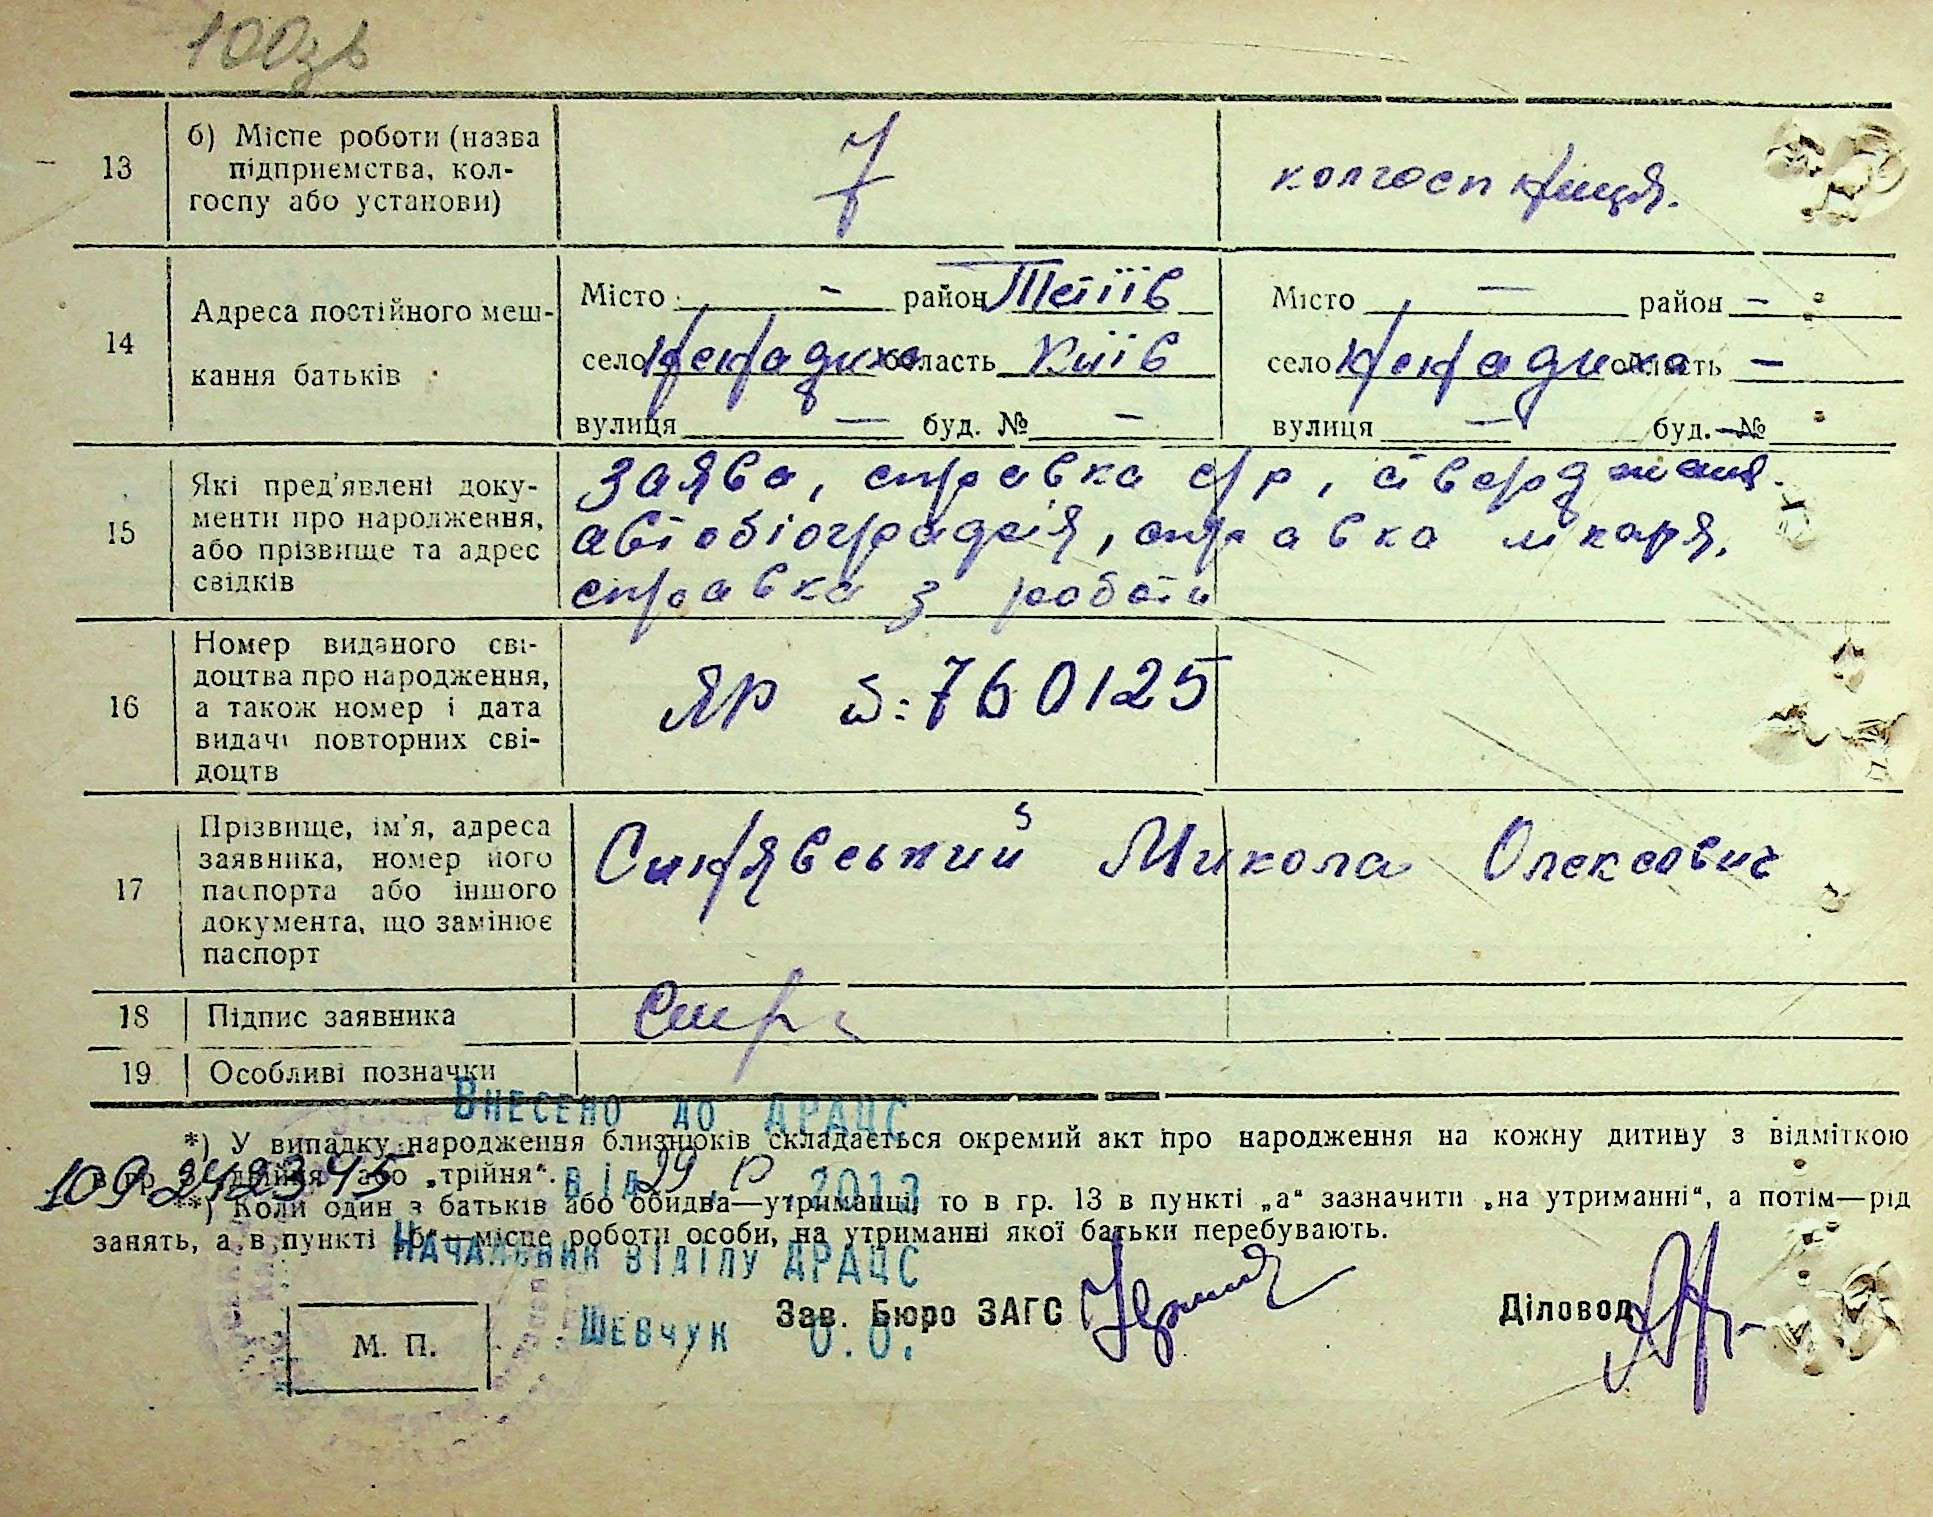 100зв
13
б) Місце роботи (назва
підприємства, кол-
госпу або установи)
7
колгоспниця.
14
Адреса постійного меш-
кання батьків
Місто – район Тетіїв
село Ненадиха область Київ
вулиця — буд. № –
Місто — район –
село Ненадиха область –
вулиця — буд. №
15
Які пред'явлені доку-
менти про народження,
або прізвище та адрес
свідків
заява, справка с/р, ствердження.
автобіографія, справка лікаря,
справка з роботи
16
Номер виданого сві-
доцтва про народження,
а також номер і дата
видачі повторних сві-
доцтв
ЯР 760125
17
Прізвище, ім'я, адреса
заявника, номер його
паспорта або іншого
документа, що замінює
паспорт
Синявський Микола Олексович
18
Підпис заявника
19
Особливі позначки
Внесено до ДРАЦС
*) У випадку народження близнюків складається окремий акт про народження на кожну дитину з відміткою
в гр. 3 „двійня" або „трійня".
109242345
від 29 2013
**) Коли один з батьків або обидва—утриманці, то в гр. 13 в пункті „а" зазначити „на утриманні", а потім—рід
занять, а в пункті „б"—місце роботи особи, на утриманні якої батьки перебувають.
Начальник відділу ДРАЦС
Шевчук О.О.
Зав. Бюро ЗАГС
Діловод
М. П.